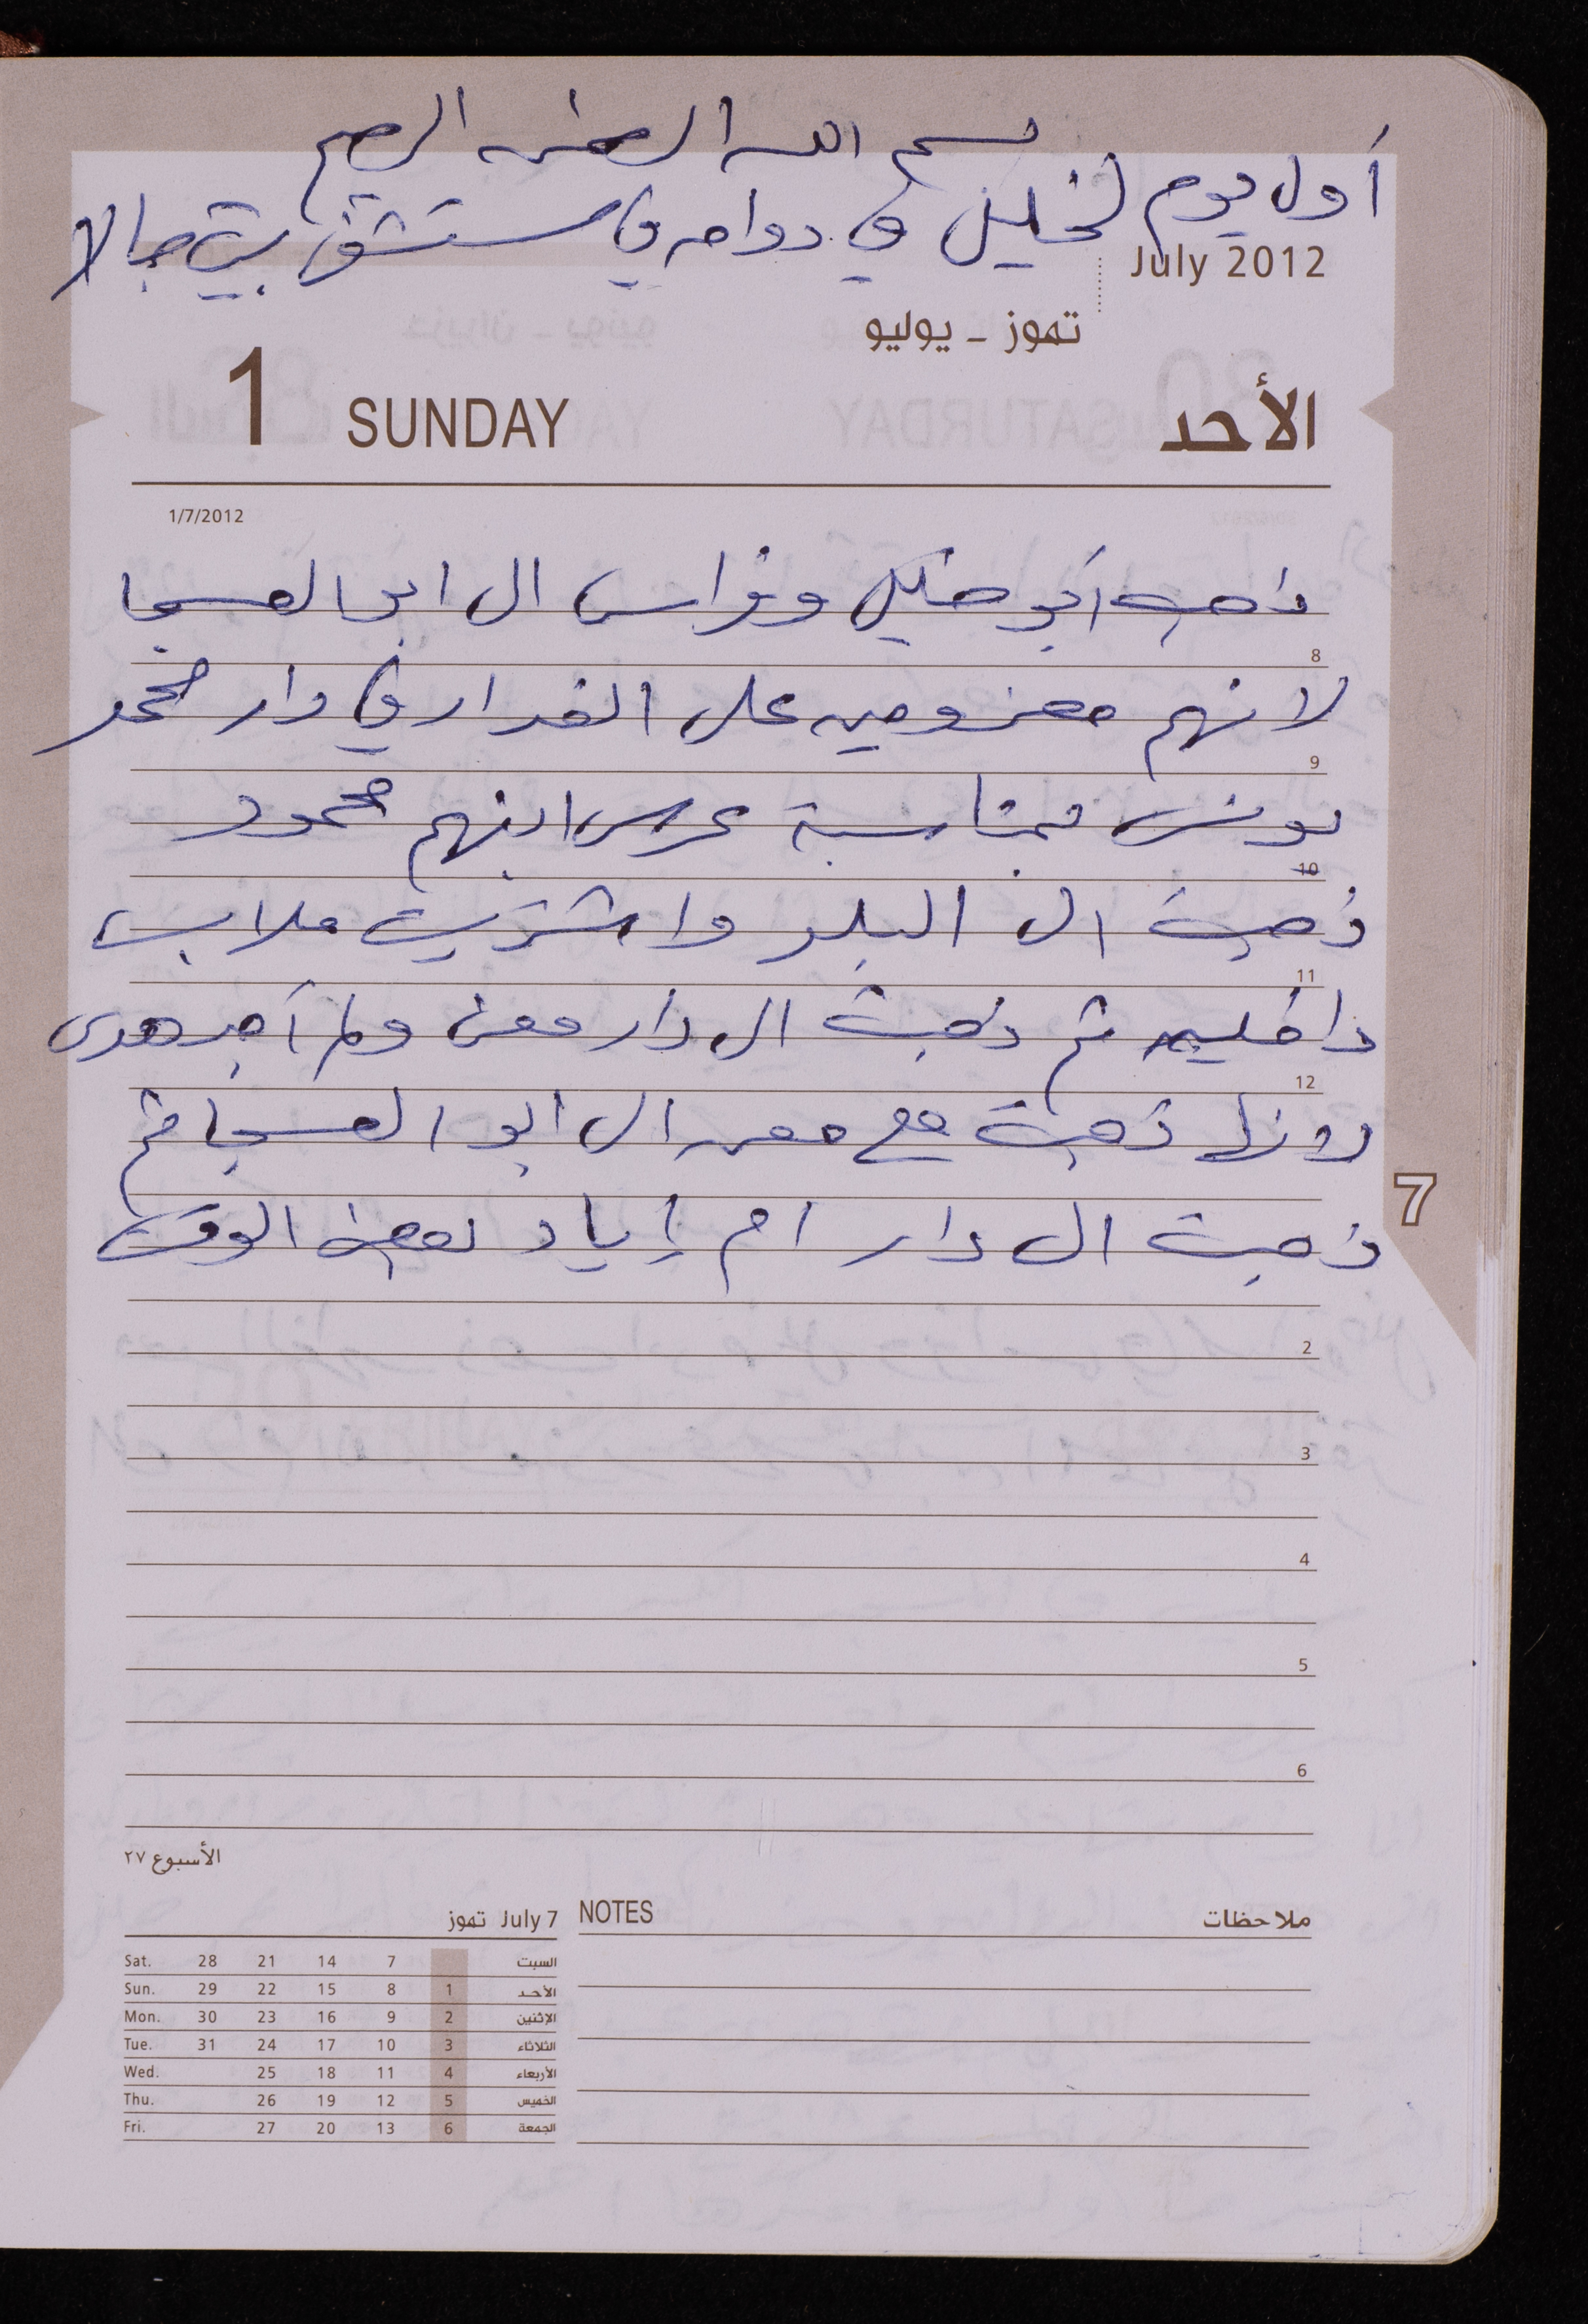 بسم الله الرحمن الرحيم
أول يوم لخليل في دوامه في مستشفى بيت جالا
July 2012
تموز - يوليو
1 SUNDAY الأحد
1/7/2012
ذهب أبو خليل وفراس الى ابو العسجا
8
لانهم معزومين على الغداء في دار محمد
9
يونس بمناسبة عرس ابنهم محمود
10
ذهبت الى البلد واشتريت ملابس
11
داخليه ثم ذهبت الى دار معن ولم أجد هدى
12
لانها ذهبت مع معن الى ابو العسجا ثم
7
ذهبت الى دار ام إياد بعض الوقت
2
3
4
5
6
الأسبوع ٢٧
July 7 تموز
Sat. 28 21 14 7 السبت
Sun. 29 22 15 8 1 الأحد
Mon. 30 23 16 9 2 الإثنين
Tue. 31 24 17 10 3 الثلاثاء
Wed. 25 18 11 4 الأربعاء
Thu. 26 19 12 5 الخميس
Fri. 27 20 13 6 الجمعة
NOTES ملاحظات